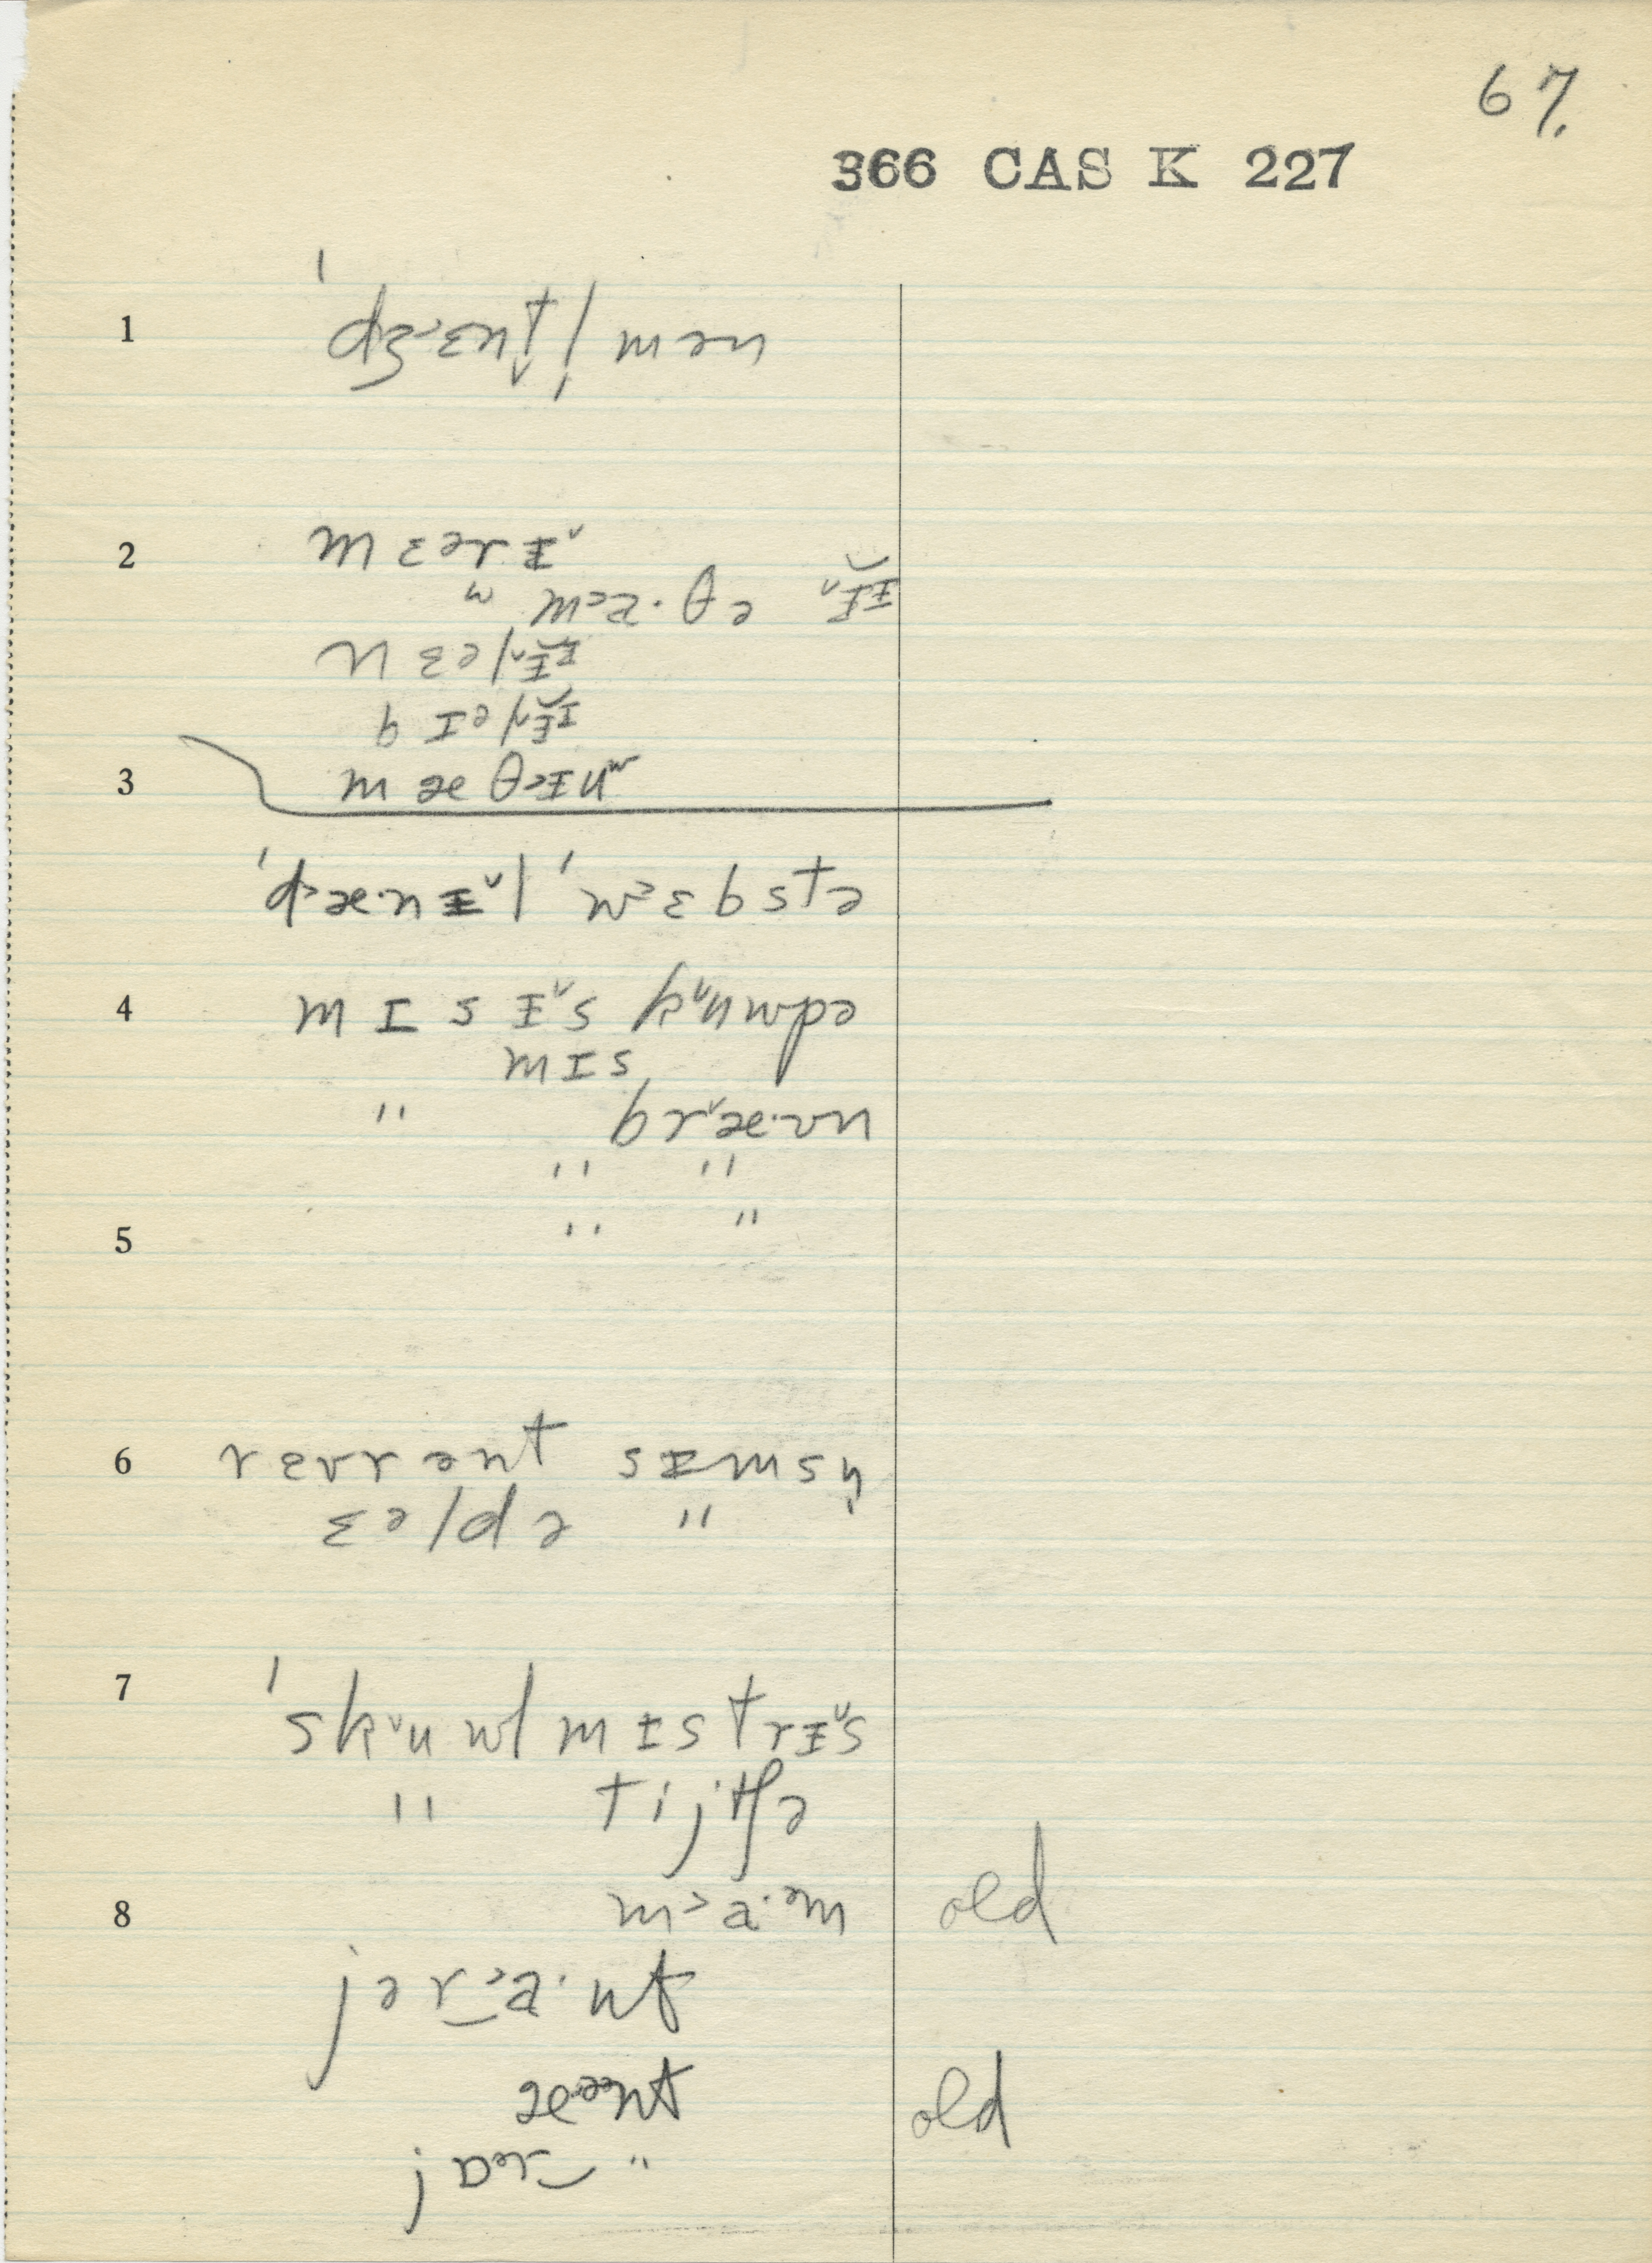 67.
366 CAS K 227
1 ˈdʒ˞ɛnt̬l̩mən
2 mɛərɨ˅
ᵚ m˃ɐ·θə ɨ˅ɨ
nɛəlɨ˅ɨ
bɪəlɨ˅ɨ
3 mæθ˃ɨuʷ
ˈd˃æ·nɨ˅l ˈw˃ɛbstə
4 mɪsɨ˅s k˅uwpə
mɪs
" br˅æ·ʊn
" "
" "
5
6 rɛvrənt sɨmsn̩
ɛəldə "
7 ˈsk˅uwlmɪstrɨ˅s
" tijtʃə
8 m˃a·ᵊm old
jər˃a·nt
æᵊnt old
jɒər "